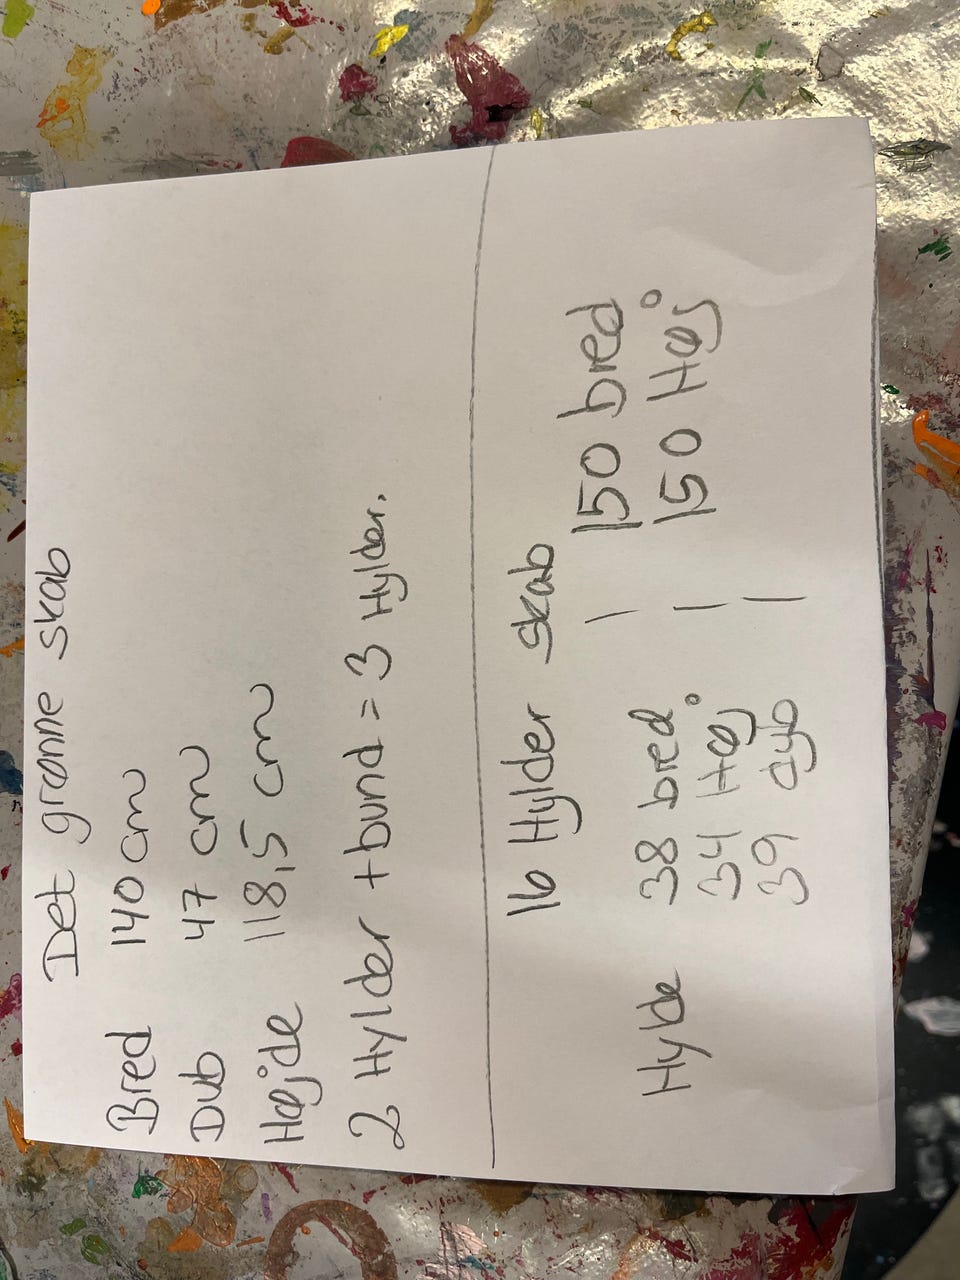 Det grønne skab
Bred 140 cm
Dub 47 cm
Højde 118,5 cm
2 Hylder + bund = 3 Hylder.
16 Hylder skab
Hylde 38 bred | 150 bred
34 Høj | 150 Høj
39 dyb |